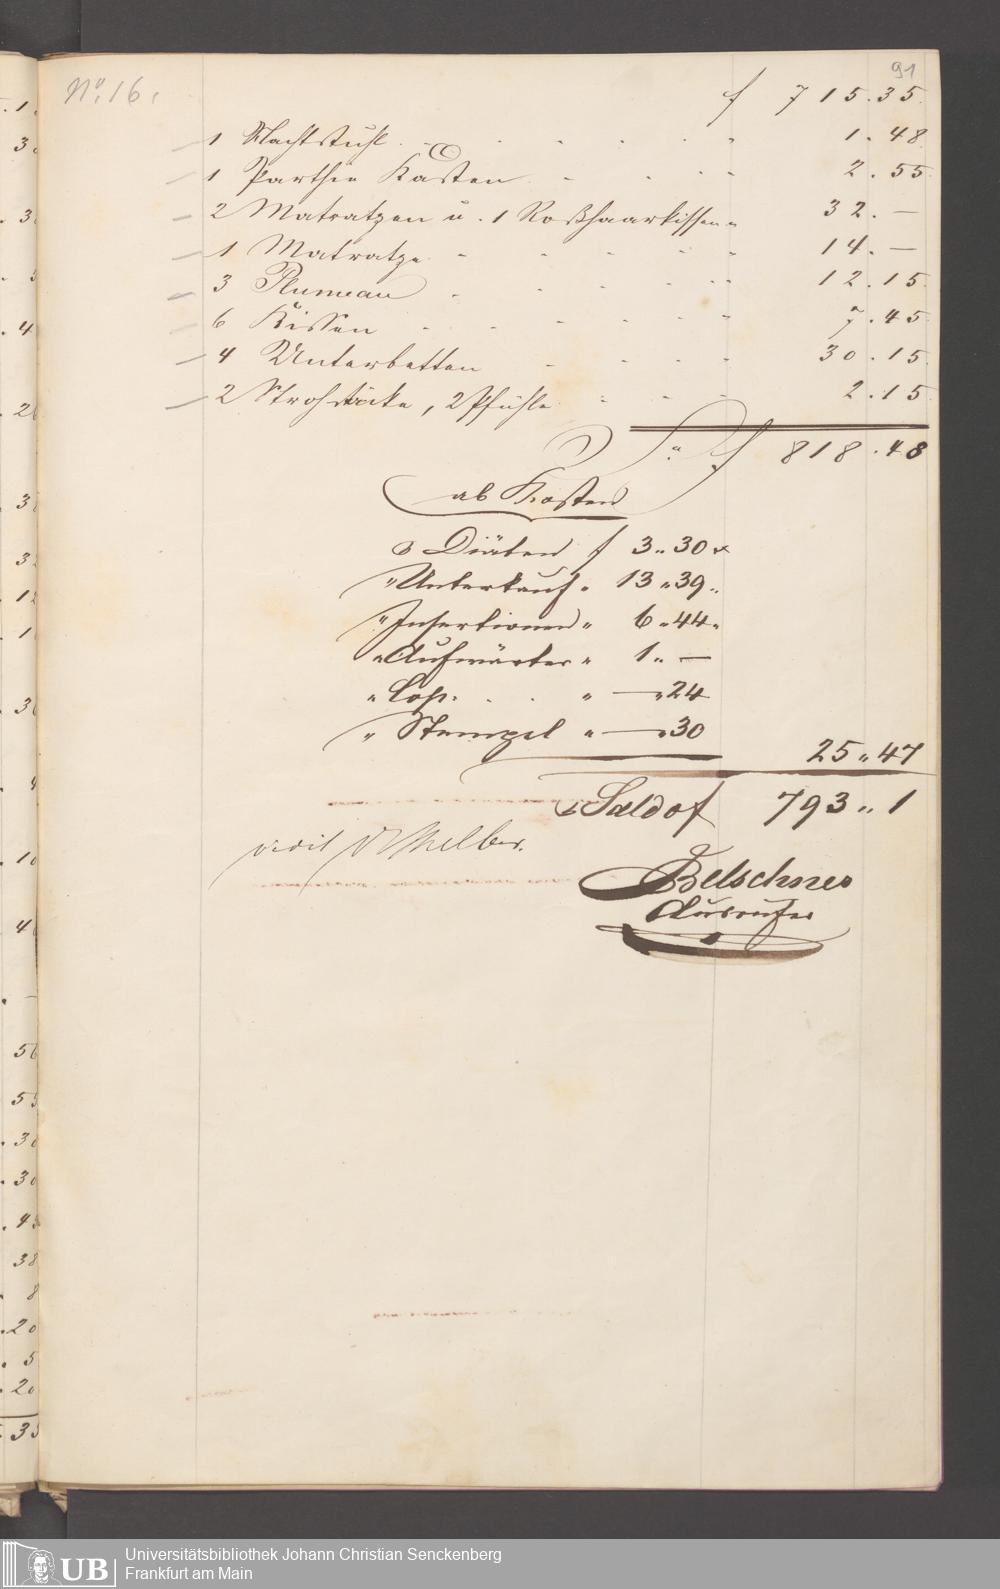 No. 16.
91
f 715.35
1 Nachtstuhl 1.48
1 Parthie Kasten 2.55
2 Matratzen u. 1 Roßhaarkissen 32.—
1 Matratze 14.—
3 Plumeau 12.15
6 Kissen 7.45
4 Unterbetten 30.15
2 Strohsäcke, 2 Pfühle 2.15
Sa f 818.48
ab Kosten
Diäten f 3„30 x
„Unterkauf „ 13„39„
„Insertionen „ 6„44„
„Aufwärter „ 1„—
„Cop. „ —„24
„Stempel „ —„30
25„47
Saldo f 793„1
vidit Dr Melber.
Belschner
Ausrufer
Universitätsbibliothek Johann Christian Senckenberg
UB Frankfurt am Main